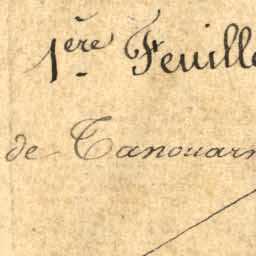 1ère Feuille
de Tanouarn